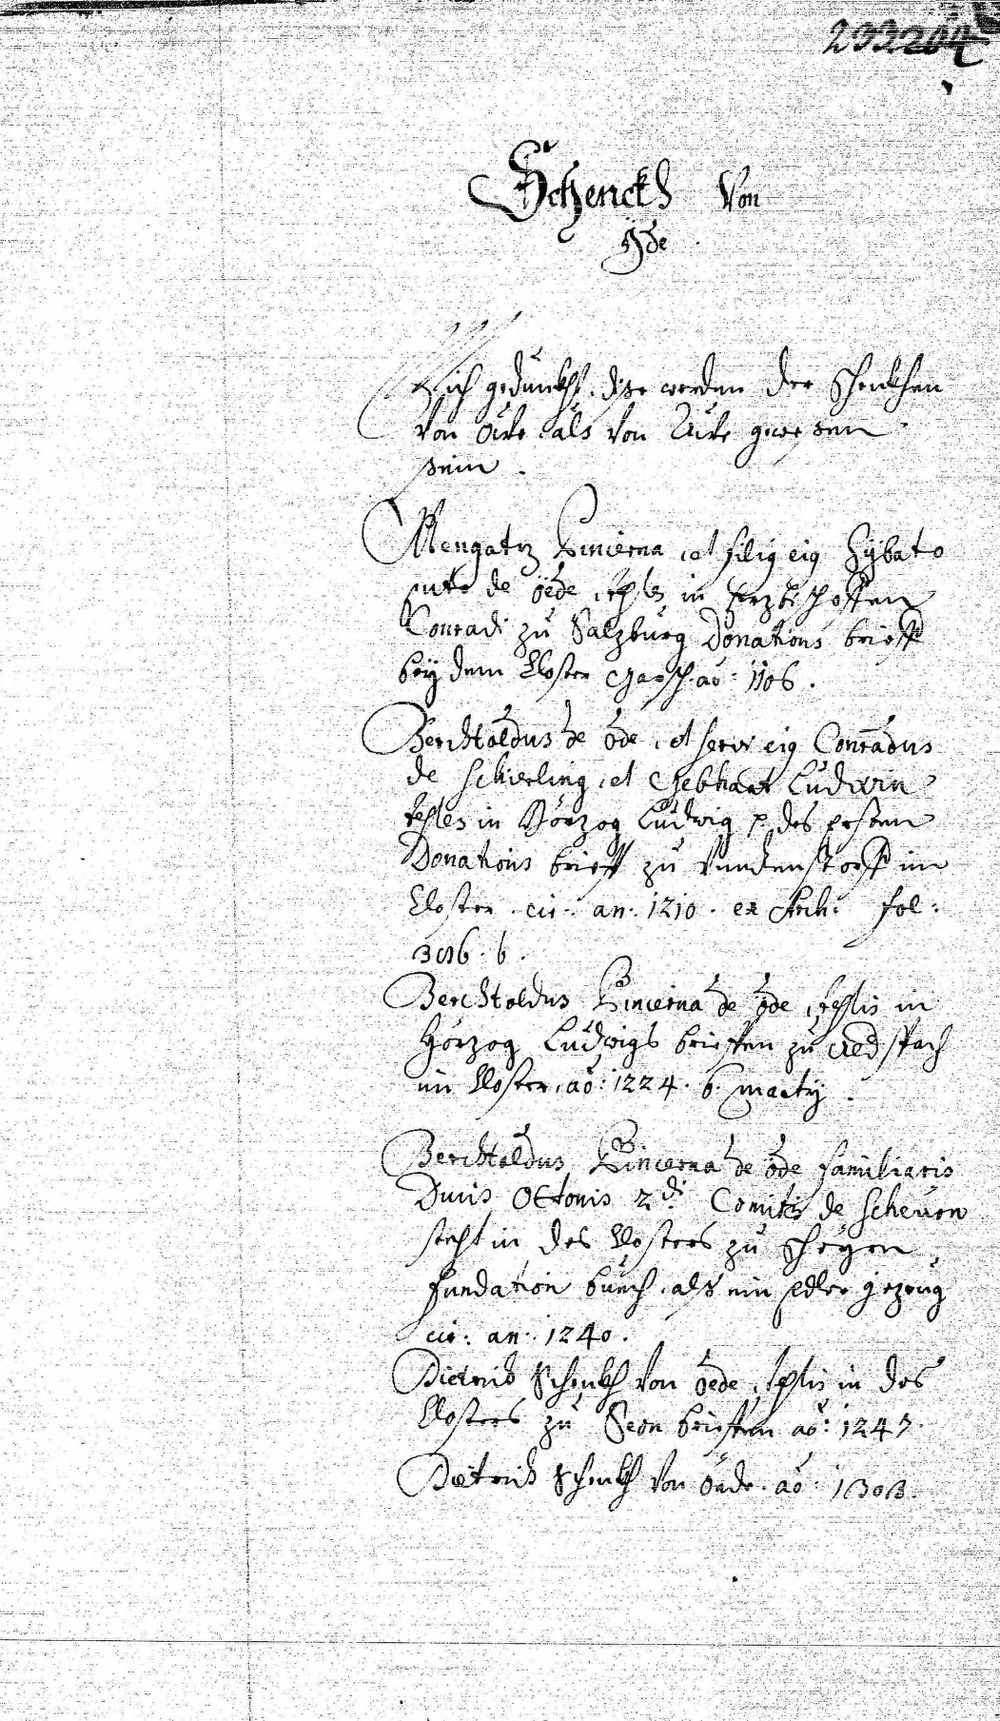 233 204
Schenckh Von
Öde
Mich gedunckht, dise werden der Schenkhen
von Aure als von Aure gewesen
sein.
Mengatz Pincerna, et filig eig Sÿbato
de öede, testes in Erzbischoffen
Conradi zu Salzburg Donations brieff
beÿ dem Closter Garsch ao: 1106.
Berchtoldus de Öde, et serv eig Conradus
de Schierling, et Gebhart Ludwin
testes in Hörzog Ludwig p. des ersten
Donations brieff zu Rundenstorff im
Closter cir: an: 1210. ex Arch: fol:
306. b.
Berchtoldus Pincerna de öde, testis in
Hörzog Ludwigs brieffen zu Aldspach
im Closter, ao: 1224. 6. Martÿ.
Berchtoldus Pincerna de öde familiaris
Ducis Ottonis 2di Comitis de Scheurn
steht in des Closters zu Scheyrn
fundation buech, als ein Edler gezeug
cir: an: 1240.
Dietrich Schenkh von Öede, testis in des
Closters zu Seon brieffen ao: 1247.
Dietrich Schenkh von Öede. ao: 1303.